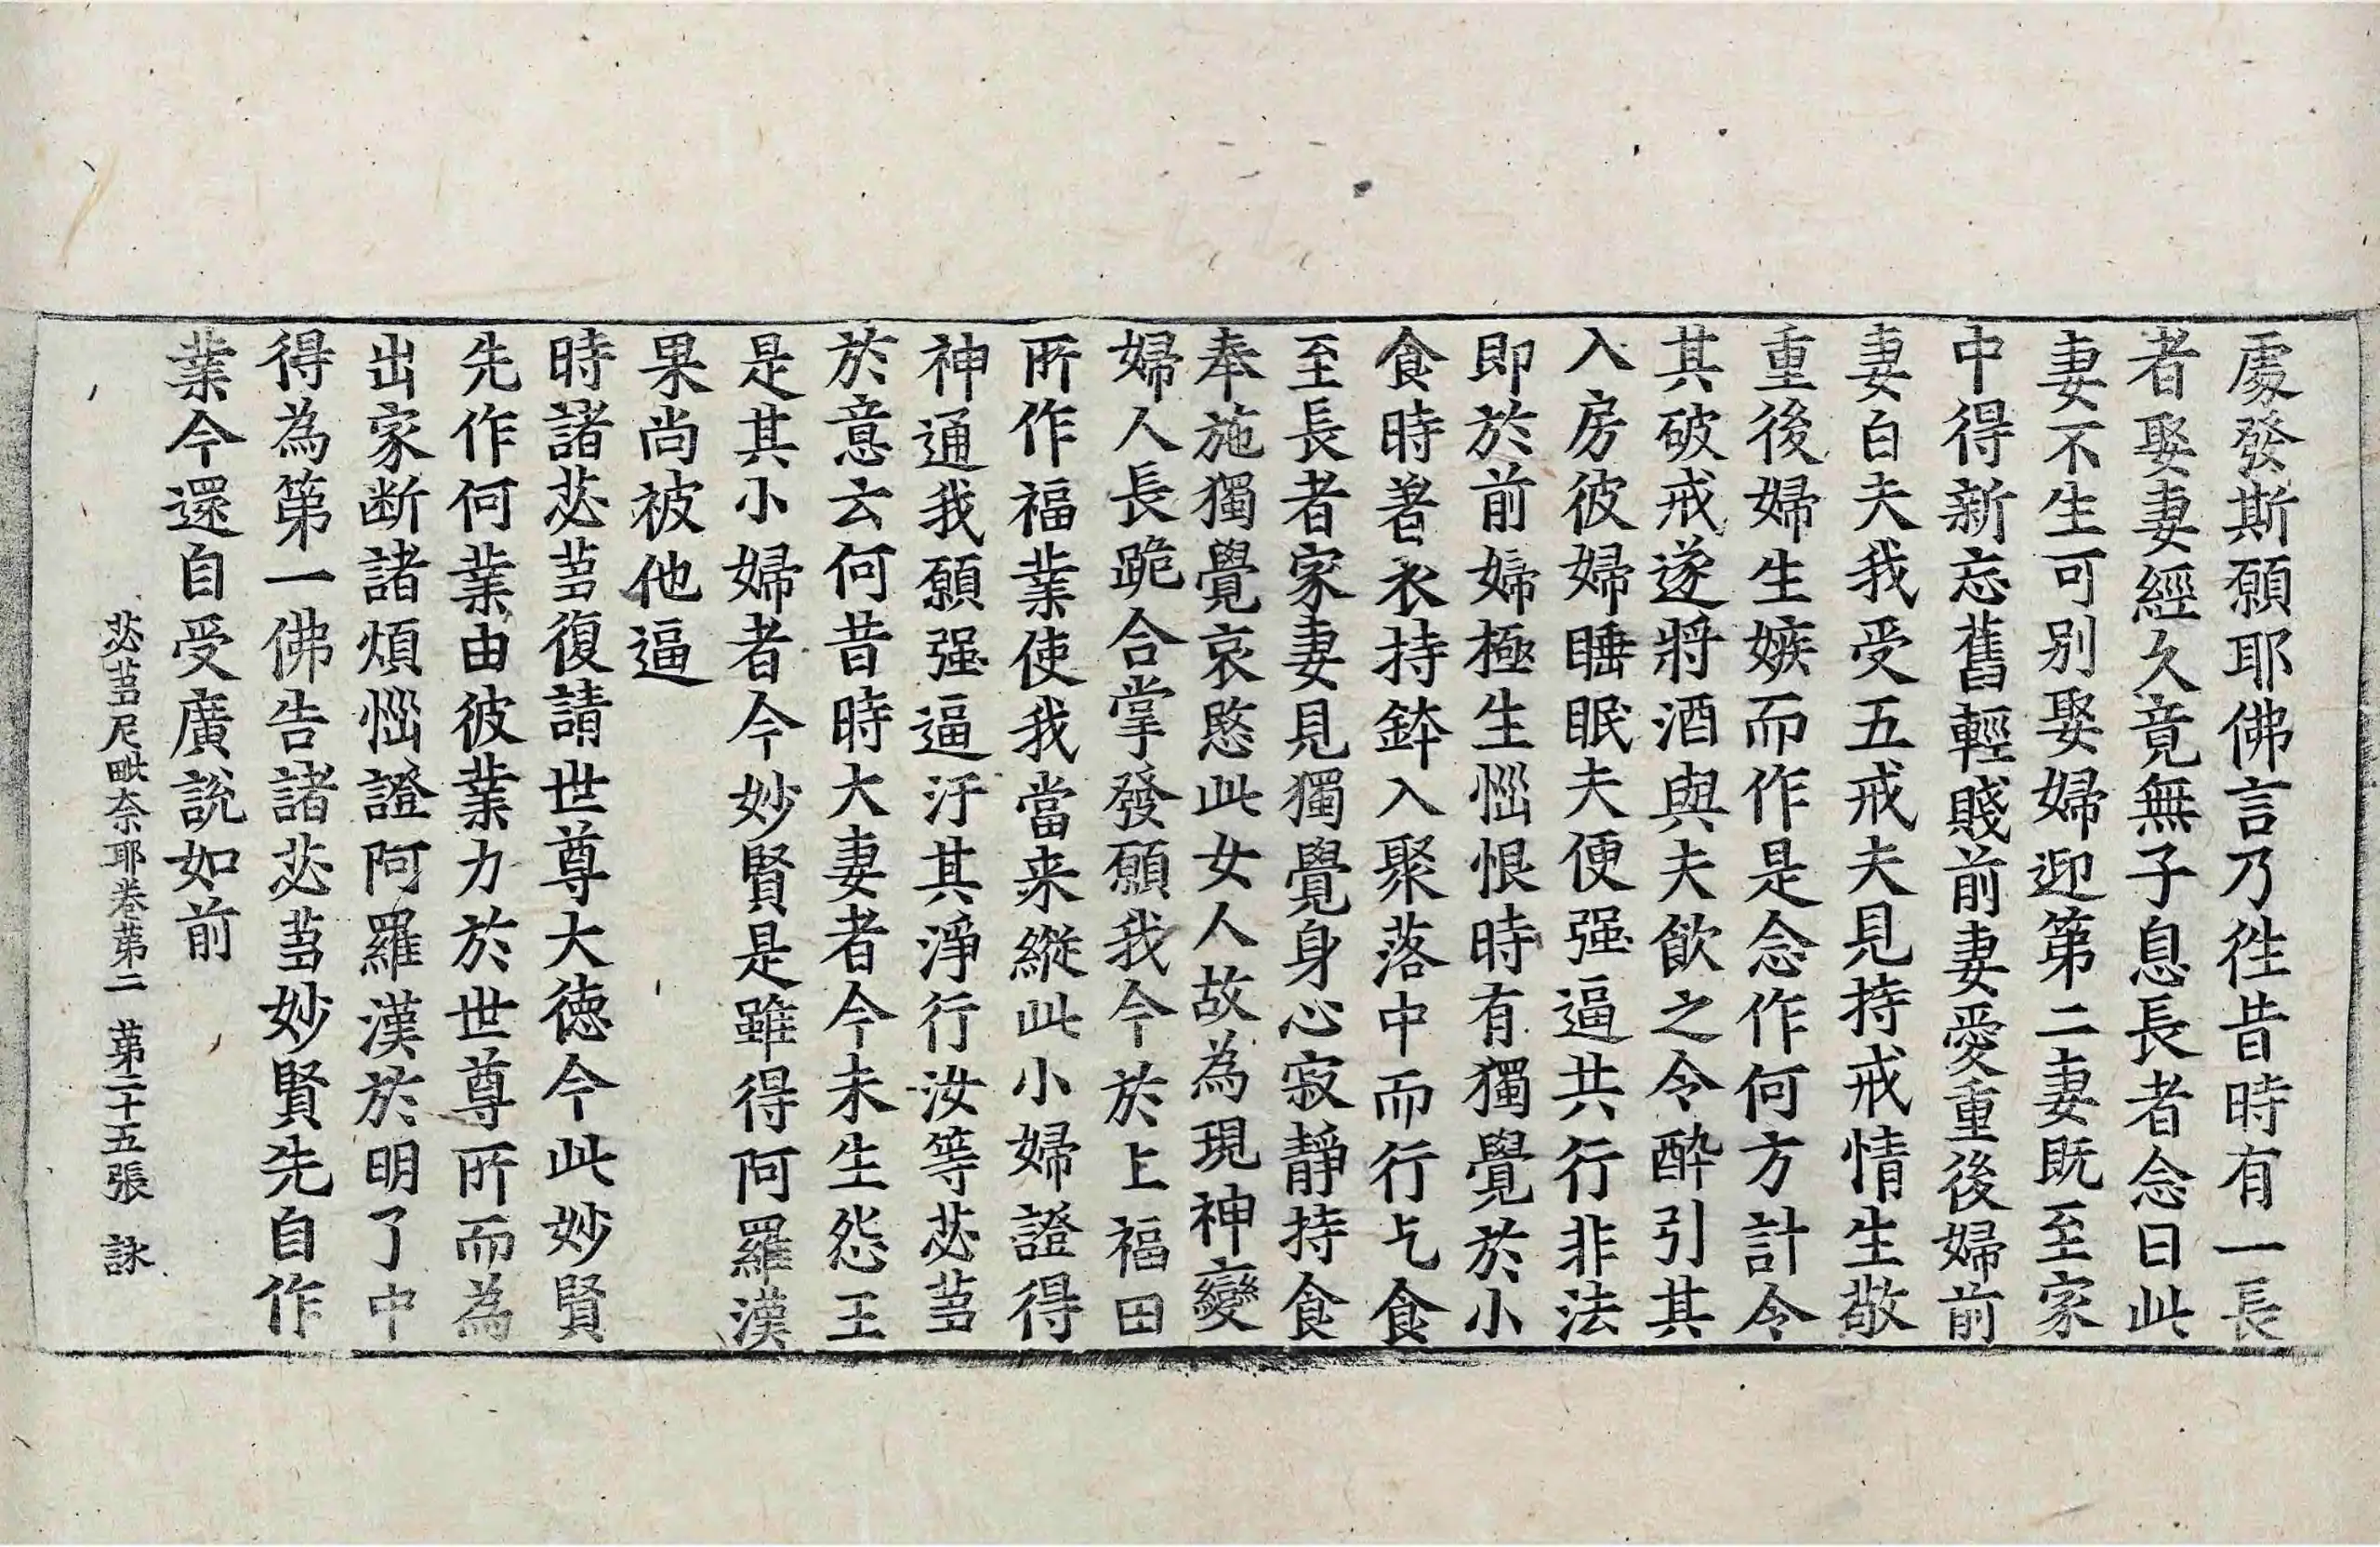 處發斯願耶佛言乃徃昔時有一長
者娶妻經久竟無子息長者念曰此
妻不生可别娶婦迎第二妻既至家
中得新忘舊輕賤前妻愛重後婦前
妻白夫我受五戒夫見持戒情生敬
重後婦生嫉而作是念作何方計令
其破戒遂將酒與夫飲之令醉引其
入房彼婦睡眠夫便强逼共行非法
即於前婦極生惱恨時有獨覺於小
食時著衣持鉢入聚落中而行乞食
至長者家妻見獨覺身心寂静持食
奉施獨覺哀愍此女人故為現神變
婦人長跪合掌發願我今於上福田
所作福業使我當来縱此小婦證得
神通我願强逼汙其淨行汝等苾蒭
於意云何昔時大妻者今未生怨王
是其小婦者今妙賢是雖得阿羅漢
果尚被他逼
時諸苾蒭復請世尊大徳今此妙賢
先作何業由彼業力於世尊所而為
出家断諸煩惱證阿羅漢於明了中
得為第一佛告諸苾蒭妙賢先自作
業今還自受廣說如前
苾蒭尼毗奈耶卷第二 第二十五張 詠